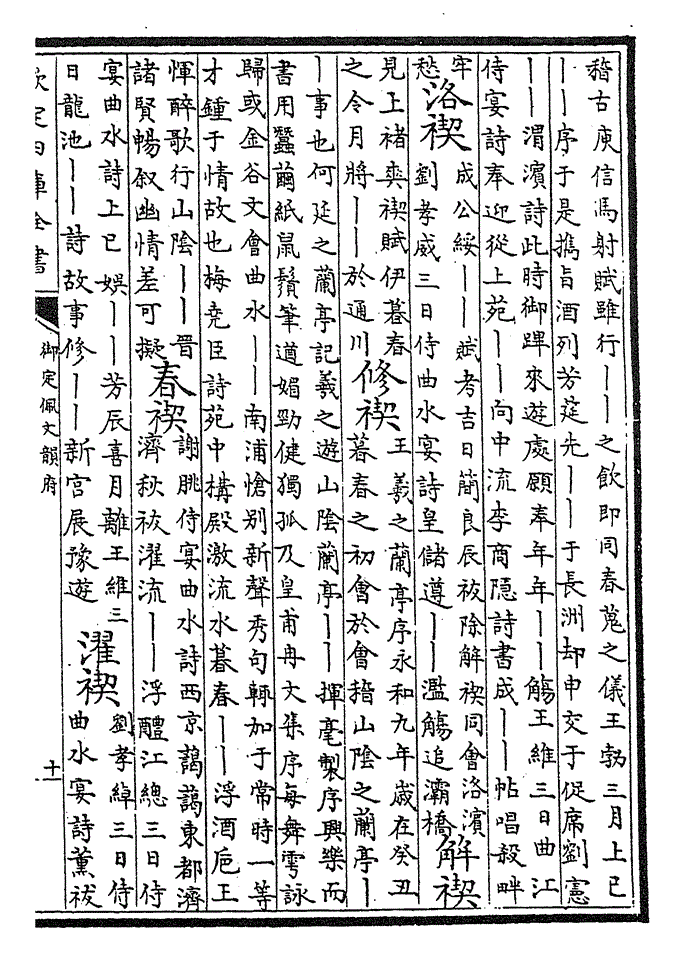 稽古庾信馮射賦雖行｜｜之飲即同春蒐之儀王勃三月上巳
｜｜序于是擕旨酒列芳筵先｜｜于長洲却申交于促席劉憲
｜｜渭濱詩此時御蹕來遊處願奉年年｜｜觴王維三日曲江
侍宴詩奉迎從上苑｜｜向中流李商隱詩書成｜｜帖唱殺畔
牢
愁
洛禊
成公綏｜｜賦考吉日簡良辰祓除解禊同會洛濱
劉孝威三日侍曲水宴詩皇儲遵｜｜濫觴追灞橋
解禊
見上褚爽禊賦伊暮春
之令月將｜｜於通川
修禊
王羲之蘭亭序永和九年歲在癸丑
暮春之初會於會稽山陰之蘭亭｜
｜事也何延之蘭亭記羲之遊山陰蘭亭｜｜揮毫製序興樂而
書用蠶繭紙鼠鬚筆遒媚勁健獨孤及皇甫冉文集序每舞雩詠
歸或金谷文會曲水｜｜南浦愴别新聲秀句輒加于常時一等
才鍾于情故也梅堯臣詩苑中構殿激流水暮春｜｜浮酒巵王
惲醉歌行山陰｜｜晉
諸賢暢叙幽情差可擬
春禊
謝朓侍宴曲水詩西京藹藹東都濟
濟秋祓濯流｜｜浮醴江總三日侍
宴曲水詩上巳娛｜｜芳辰喜月離王維三
日龍池｜｜詩故事修｜｜新宮展豫遊
濯禊
劉孝綽三日侍
曲水宴詩薰祓
欽定四庫全書
御定佩文韻府
十一